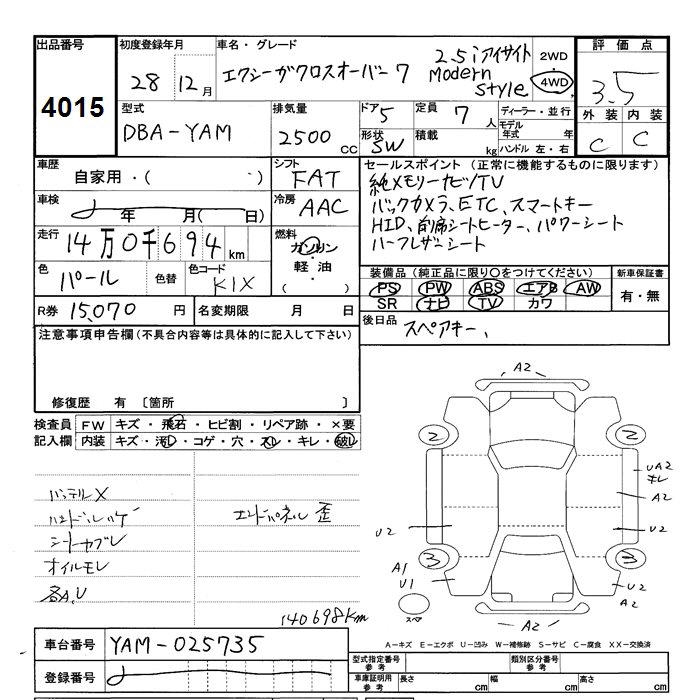 出品番号
4015
初度登録年月
28 12月
車名・グレード
エクシーガクロスオーバー7
2.5i アイサイト
Modern
Style
2WD
4WD
評価点
3.5
外装 内装
C C
型式
DBA-YAM
排気量
2500 CC
ドア 5
形状 SW
定員 7 人
積載 kg
ディーラー・並行
モデル年式 年
ハンドル 左・右
車歴
自家用・( )
シフト
FAT
車検
年 月(日)
冷房
AAC
走行
14万0千694 km
燃料
ガソリン
軽油
( )
色
パール
色替
色コード
K1X
R券 15,070 円
名変期限 月 日
セールスポイント(正常に機能するものに限ります)
純メモリーナビ/TV
バックカメラ、ETC、スマートキー
HID、前席シートヒーター、パワーシート
ハーフレザーシート
装備品(純正品に限り○をつけてください)
PS PW ABS エアB AW
SR ナビ TV カワ
新車保証書
有・無
後日品
スペアキー、
注意事項申告欄(不具合内容等は具体的に記入して下さい)
修復歴 有 〔箇所 〕
検査員記入欄
FW キズ・飛石・ヒビ割・リペア跡・×要
内装 キズ・汚レ・コゲ・穴・スレ・キレ・破レ
バッテルX
ハンドルハゲ
シートカブレ
オイルモレ
各A,U
エンドパネル 歪
140698km
A2
2
2
UA2
キレ
A2
U2
U2
3
3
A1
U1
U2
A2
A2
スペア
A-キズ E-エクボ U-凹み W-補修跡 S-サビ C-腐食 XX-交換済
車台番号
YAM-025735
登録番号
型式指定番号
参考
類別区分番号
参考
車庫証明用
参考
長さ cm
幅 cm
高さ cm